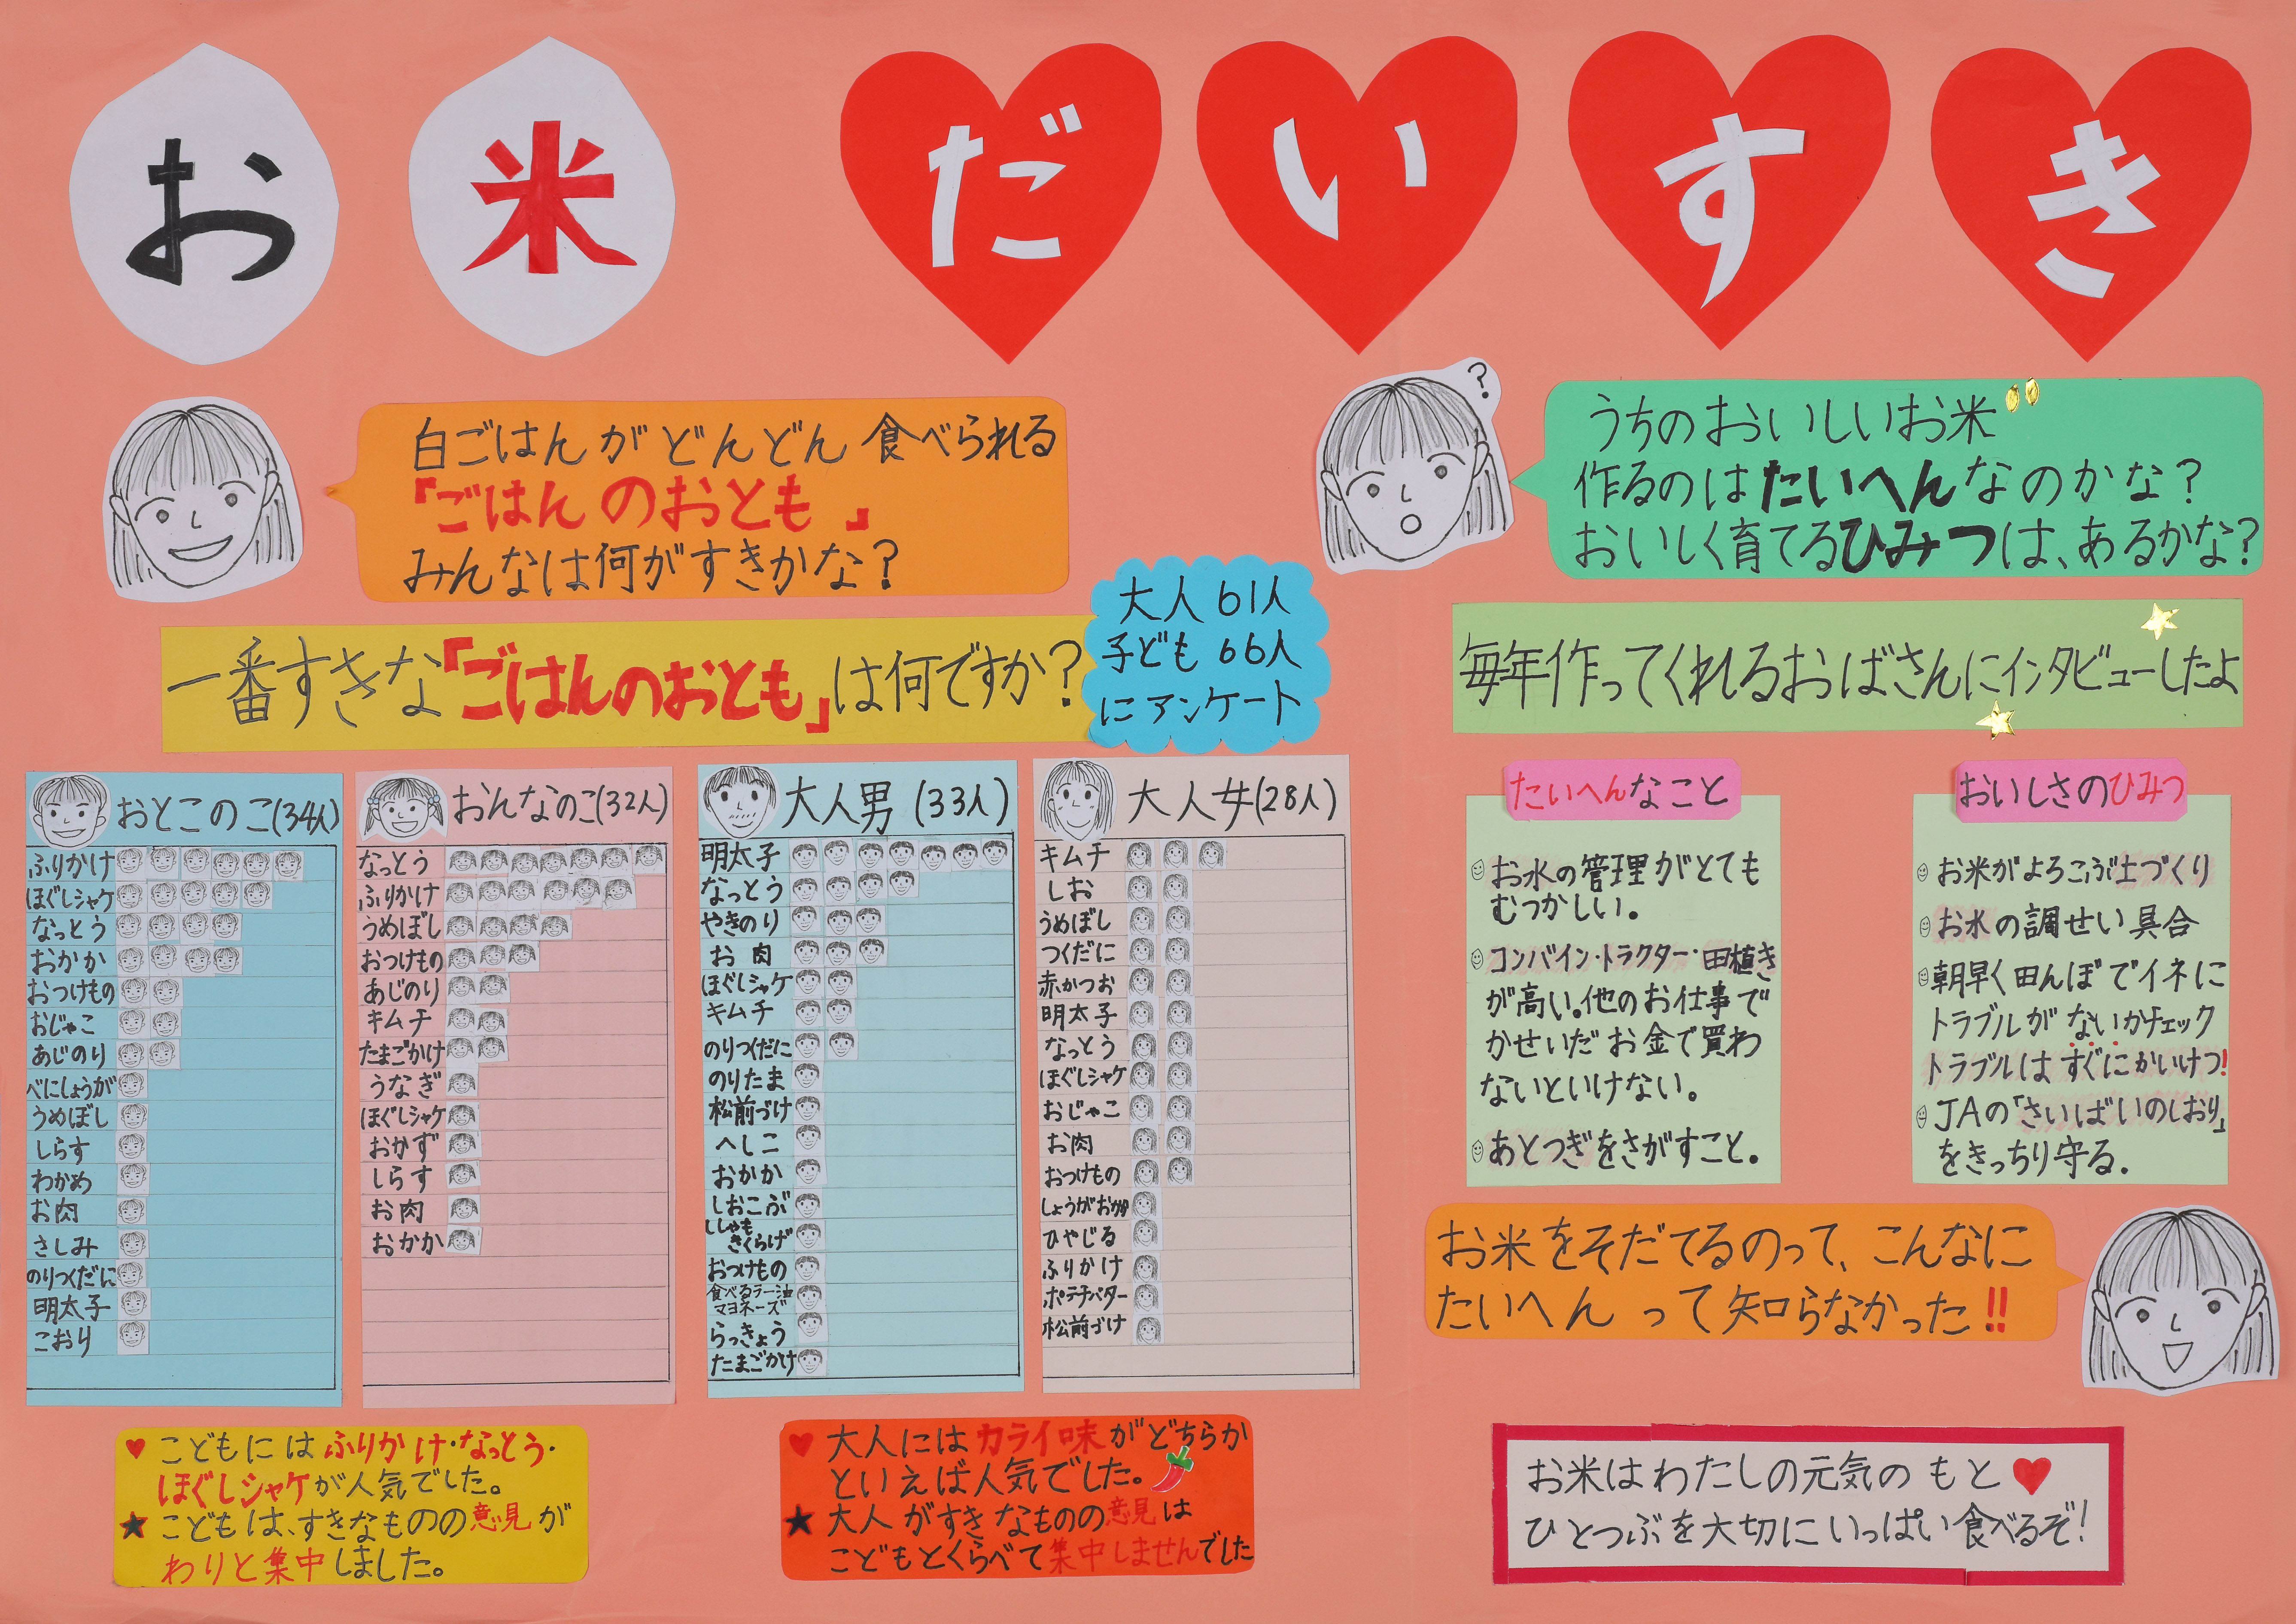 お米 だいすき
白ごはんがどんどん食べられる
『ごはんのおとも』
みんなは何がすきかな？
うちのおいしいお米
作るのはたいへんなのかな？
おいしく育てるひみつは、あるかな？
?
一番すきな『ごはんのおとも』は何ですか？
大人61人
子ども66人
にアンケート
毎年作ってくれるおばさんにインタビューしたよ
おとこのこ(34人)
ふりかけ
ほぐしシャケ
なっとう
おかか
おつけもの
おじゃこ
あじのり
べにしょうが
うめぼし
しらす
わかめ
お肉
さしみ
のりつくだに
明太子
こおり
おんなのこ(32人)
なっとう
ふりかけ
うめぼし
おつけもの
あじのり
キムチ
たまごかけ
うなぎ
ほぐしシャケ
おかず
しらす
お肉
おかか
大人男(33人)
明太子
なっとう
やきのり
お肉
ほぐしシャケ
キムチ
のりつくだに
のりたま
松前づけ
へしこ
おかか
しおこぶ
ししゃも
きくらげ
おつけもの
食べるラー油
マヨネーズ
らっきょう
たまごかけ
大人女(28人)
キムチ
しお
うめぼし
つくだに
赤かつお
明太子
なっとう
ほぐしシャケ
おじゃこ
お肉
おつけもの
しょうがおかか
ひやじる
ふりかけ
ポテチバター
松前づけ
たいへんなこと
お水の管理がとても
むつかしい。
コンバイン・トラクター・田植き
が高い。他のお仕事で
かせいだお金で買わ
ないといけない。
あとつぎをさがすこと。
おいしさのひみつ
お米がよろこぶ土づくり
お水の調せい具合
朝早く田んぼでイネに
トラブルがないかチェック
トラブルはすぐにかいけつ!
JAの「さいばいのしおり」
をきっちり守る。
お米をそだてるのって、こんなに
たいへんって知らなかった!!
♥こどもにはふりかけ・なっとう・
ほぐしシャケが人気でした。
★こどもは、すきなものの意見が
わりと集中しました。
♥大人にはカライ味がどちらか
といえば人気でした。
★大人がすきなものの意見は
こどもとくらべて集中しませんでした
お米はわたしの元気のもと♥
ひとつぶを大切にいっぱい食べるぞ!